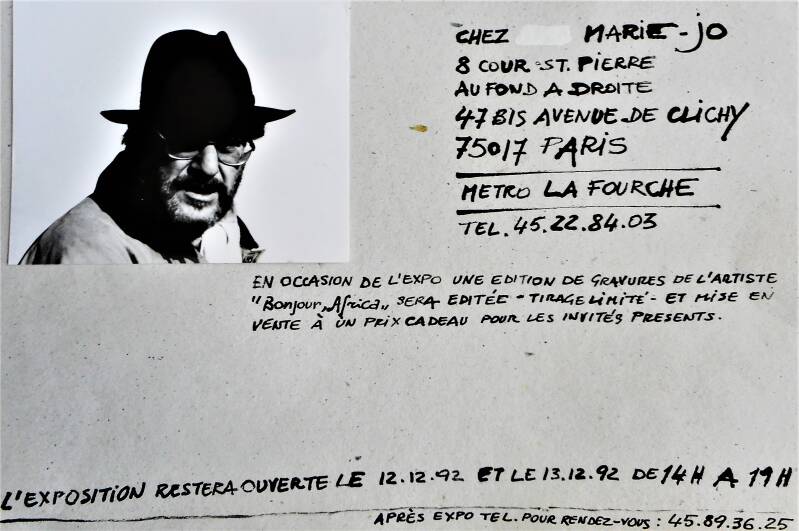 CHEZ MARIE-JO
8 COUR ST. PIERRE
AU FOND A DROITE
47 BIS AVENUE DE CLICHY
75017 PARIS
METRO LA FOURCHE
TEL. 45.22.84.03
EN OCCASION DE L'EXPO UNE EDITION DE GRAVURES DE L'ARTISTE
"Bonjour Africa" SERA EDITÉE - TIRAGE LIMITÉ - ET MISE EN
VENTE À UN PRIX CADEAU POUR LES INVITÉS PRESENTS.
L'EXPOSITION RESTERA OUVERTE LE 12.12.92 ET LE 13.12.92 DE 14H A 19H
APRÈS EXPO TEL. POUR RENDEZ-VOUS : 45.89.36.25